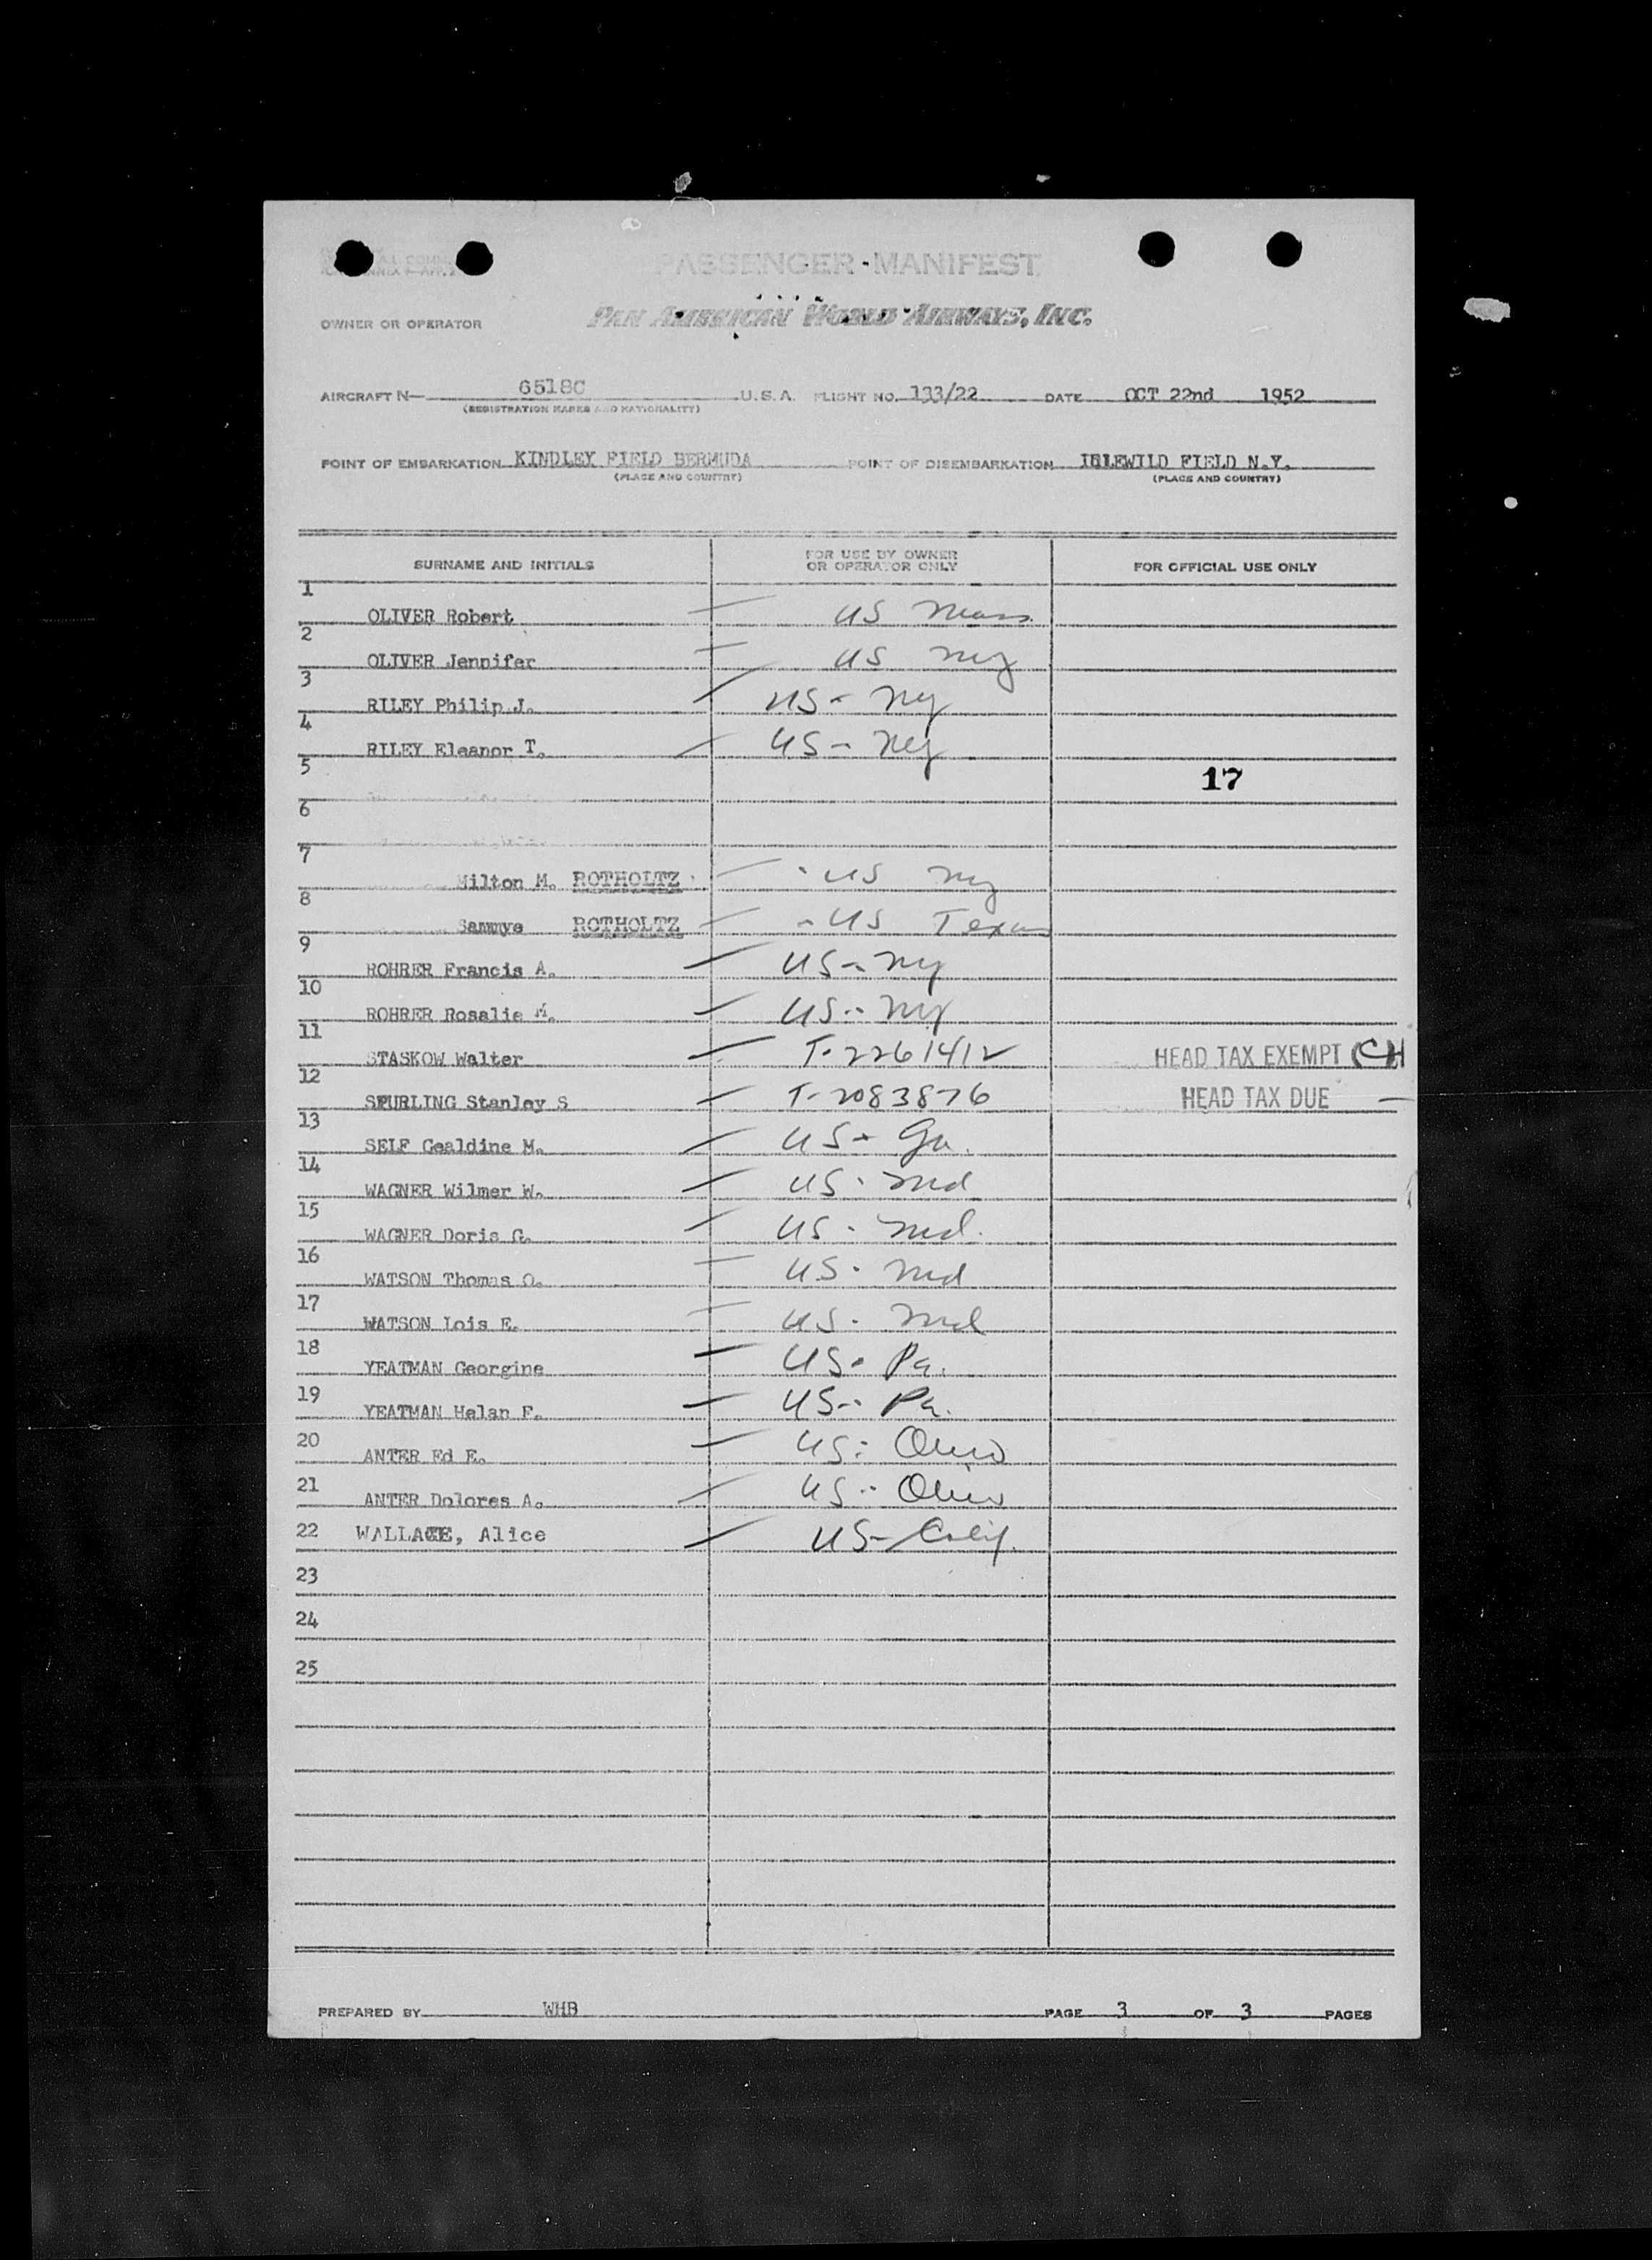 PASSENGER MANIFEST
OWNER OR OPERATOR PAN AMERICAN WORLD AIRWAYS, INC.
AIRCRAFT N— 6518C U.S.A. FLIGHT NO. 133/22 DATE OCT 22nd 1952
(REGISTRATION MARKS AND NATIONALITY)
POINT OF EMBARKATION KINDLEY FIELD BERMUDA POINT OF DISEMBARKATION IDLEWILD FIELD N.Y.
(PLACE AND COUNTRY) (PLACE AND COUNTRY)
SURNAME AND INITIALS FOR USE BY OWNER OR OPERATOR ONLY FOR OFFICIAL USE ONLY
1 OLIVER Robert — US Mass
2 OLIVER Jennifer — US NY
3 RILEY Philip J. — US - NY
4 RILEY Eleanor T. — US - NY
5 17
6
7 Milton M. ROTHOLTZ — US NY
8 Sammye ROTHOLTZ — - US Texas
9 ROHRER Francis A. — US - NY
10 ROHRER Rosalie A. — US - NY
11 STASKOW Walter — T-2261412 HEAD TAX EXEMPT CH
12 SPURLING Stanley S — T-2083876 HEAD TAX DUE —
13 SELF Gealdine M. — US - Ga.
14 WAGNER Wilmer W. — US - Md
15 WAGNER Doris G. — US - Md.
16 WATSON Thomas O. — US - Md
17 WATSON Lois E. — US - Md
18 YEATMAN Georgine — US - Pa.
19 YEATMAN Helan F. — US - Pa.
20 ANTER Ed E. — US - Ohio
21 ANTER Dolores A. — US - Ohio
22 WALLACE, Alice — US - Calif.
23
24
25
PREPARED BY WHB PAGE 3 OF 3 PAGES